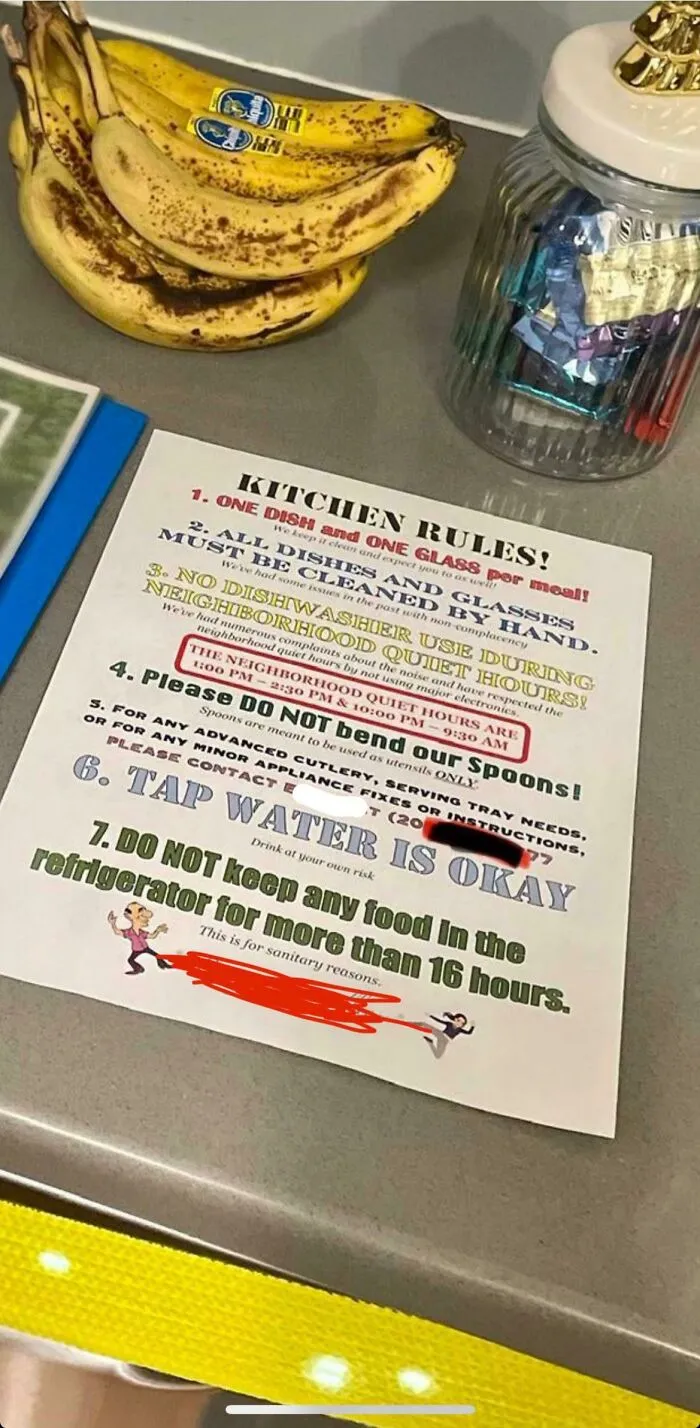 Chiquita
Chiquita
KITCHEN RULES!
1. ONE DISH and ONE GLASS per meal!
We keep it clean and expect you to as well!
2. ALL DISHES AND GLASSES
MUST BE CLEANED BY HAND.
We've had some issues in the past with non-complacency
3. NO DISHWASHER USE DURING
NEIGHBORHOOD QUIET HOURS!
We've had numerous complaints about the noise and have respected the
neighborhood quiet hours by not using major electronics.
THE NEIGHBORHOOD QUIET HOURS ARE
1:00 PM – 2:30 PM & 10:00 PM – 9:30 AM
4. Please DO NOT bend our Spoons!
Spoons are meant to be used as utensils ONLY.
5. FOR ANY ADVANCED CUTLERY, SERVING TRAY NEEDS,
OR FOR ANY MINOR APPLIANCE FIXES OR INSTRUCTIONS,
PLEASE CONTACT E T (20 77
6. TAP WATER IS OKAY
Drink at your own risk
7. DO NOT keep any food in the
refrigerator for more than 16 hours.
This is for sanitary reasons.